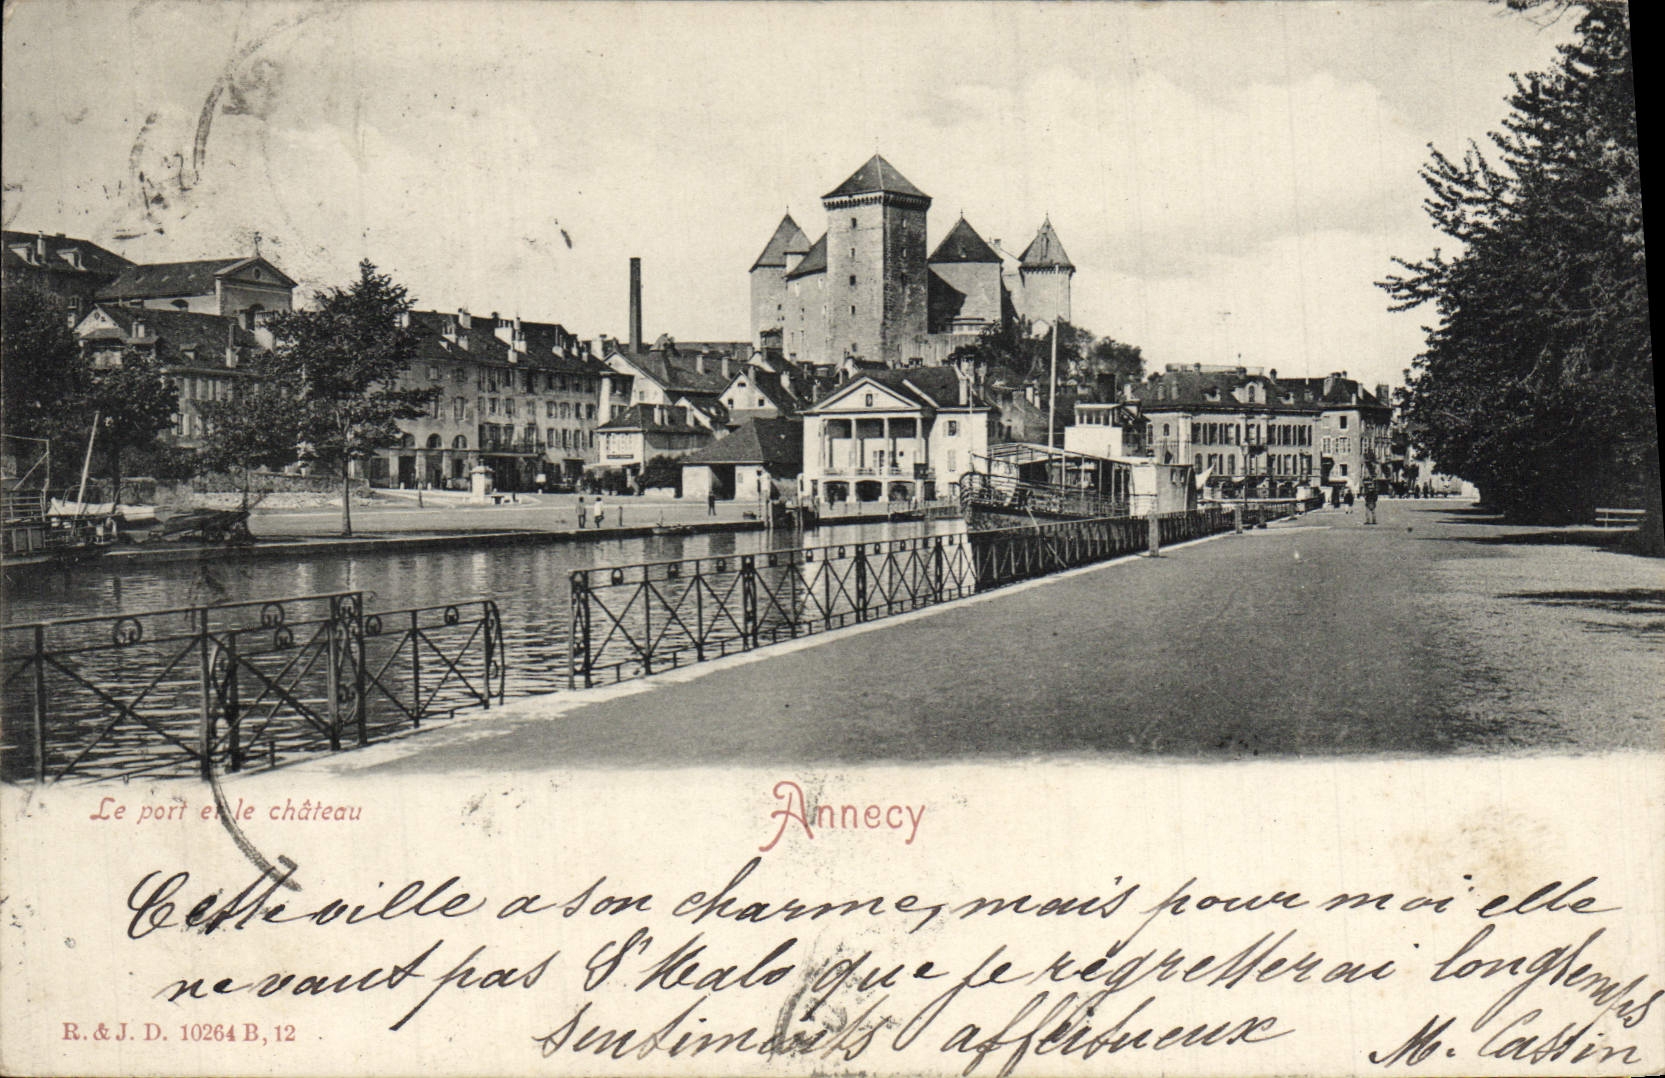 Le port et le château
Annecy
Cette ville a son charme, mais pour moi elle
ne vaut pas St Malo que je regretterai longtemps
R. & J. D. 10264 B, 12
Sentiments affectueux M. Cassin